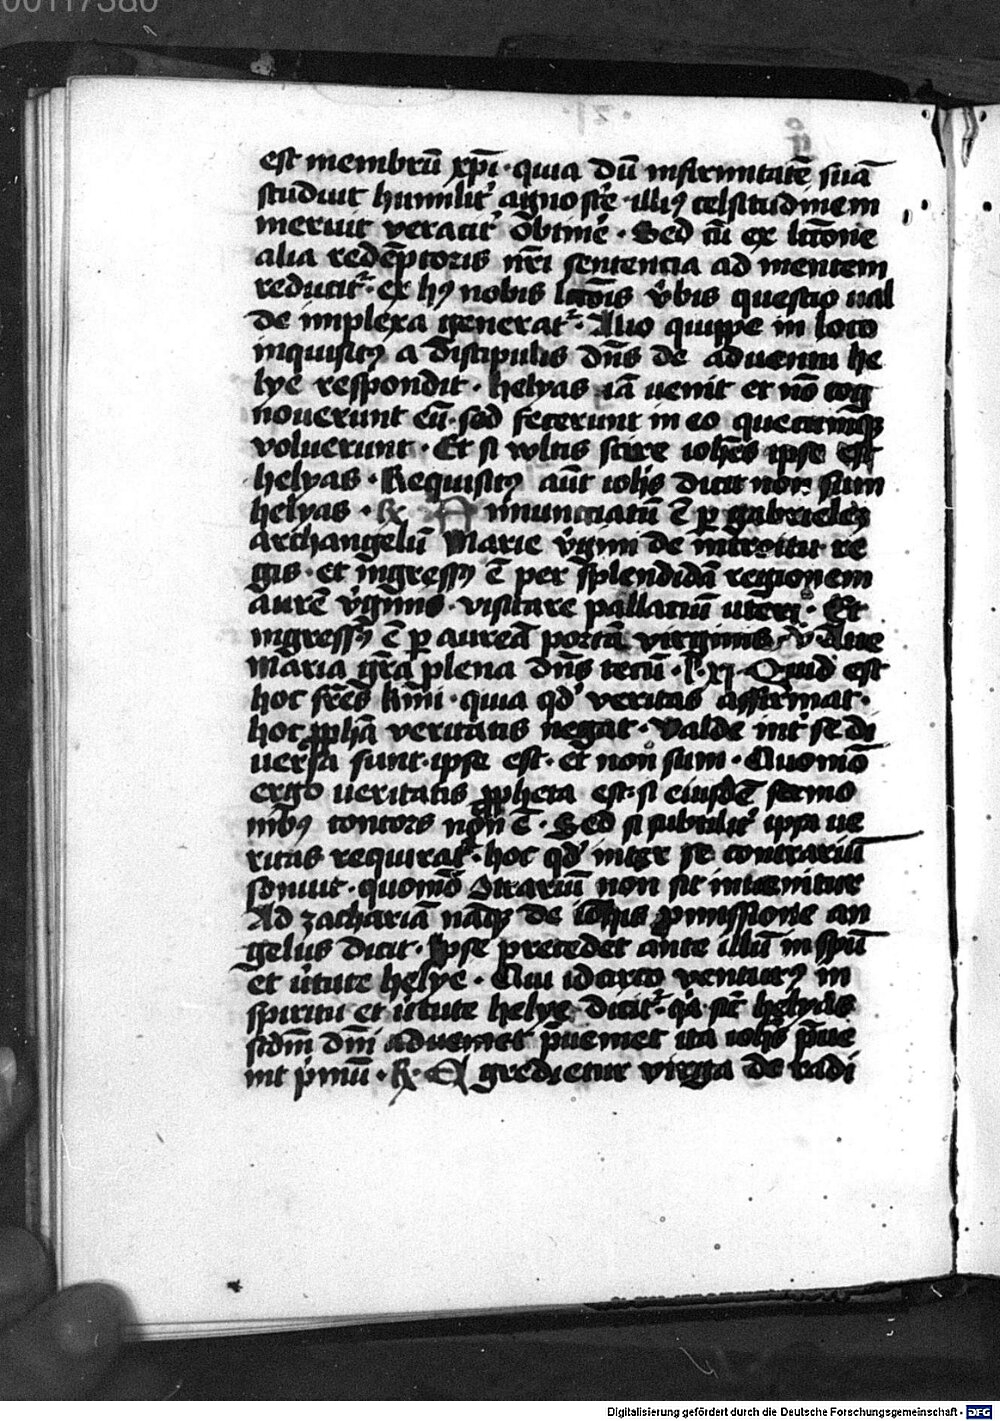 est membrū xp̄i · quia dū infirmitatē suā
studuit humilit᷑ agnosc̄e · illiꝰ celsitudinem
meruit veracit᷑ obtinē · Sed cū ex lcc̄one
alia redēptoris nr̄i sentencia ad mentem
reducit᷑ · ex hꝭ nobis lcc̄ois v̄bis questio ual
de implexa generat᷑ · Alio quippe in loco
inquisitꝰ a discipulis dn̄s de aduentu he
lye respondit · helyas iā uenit et nō cog
nouerunt eū · sed fecerunt in eo quecūqꝫ
voluerunt · Et si wltis scire ioh̄es ipse est
helyas · Requisitꝰ aūt ioh̄s dicit non sum
helyas · ℟ Annunciatū ē ꝑ gabrielēꝫ
archangelū Marie v̄gini de introitu re
gis · et ingressꝰ ē per splendidā regionem
aurē v̄ginis · visitare pallatiū uteri · Et
ingressꝰ ē ꝑ aureā portā virginis · v̄ Aue
Maria gr̄a plena dn̄s tecū · l · xj · Quid est
hoc fr̄es km̄i · quia qd᷑ veritas affirmat ·
hoc ꝓph̄a veritatis negat · Valde int᷑ se di
uersa sunt · ipse est · et non sum · Quomō
ergo veritatis ꝓpheta est · si eiusdē sermo
nibꝰ concors non ē · Sed si subtilit᷑ ipsa ue
ritas requirat᷑ · hoc qd᷑ inter se contrariū
sonuit · quomō ꝯtrariū non sit inuenitur
Ad zachariā nāqꝫ de ioh̄is ꝓmissione an
gelus dicit · Ipse precedet ante illū in sp̄u
et u̇tute helye · Qui idcirco venturꝰ in
spiritu et u̇tute helye dicit᷑ · qꝛ sic̄ helyas
scdm̄ dn̄i aduentū p̄ueniet ita ioh̄s p̄ue
nit p̄mū · ℟ · Egredietur virga de radi
Digitalisierung gefördert durch die Deutsche Forschungsgemeinschaft - DFG